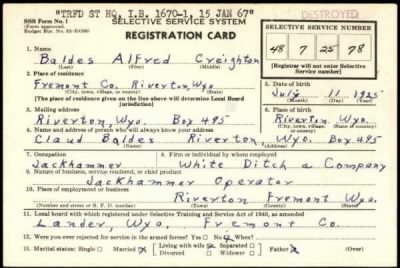 "TRFD ST HQ, I.B. 1670-1, 15 JAN 67"
DESTROYED
SSS Form No. 1
(Form approved.
SELECTIVE SERVICE SYSTEM
REGISTRATION CARD
SELECTIVE SERVICE NUMBER
48 7 25 78
(Registrar will not enter Selective Service number)
1. Name
Baldes Alfred Creighton
(First) (Middle)
2. Place of residence
Fremont Co. Riverton Wyo
(City, town, village, or county) (State)
(The place of residence given on the line above will determine Local Board jurisdiction)
5. Date of birth
July 11 1925
(Month) (Day) (Year)
3. Mailing address
Riverton, Wyo. Box 495
6. Place of birth
Riverton, Wyo.
4. Name and address of person who will always know your address
Claud Baldes Riverton, Wyo. Box 495
7. Occupation
Jackhammer
8. Firm or individual by whom employed
White Ditch a Company
9. Nature of business, service rendered, or chief product
Jackhammer Operator
10. Place of employment
Riverton Fremont Wyo.
(Number and street or R. F. D. number) (County) (State)
11. Local board with which registered under Selective Training and Service Act of 1940, as amended
Lander, Wyo. Fremont Co.
12. Were you ever rejected for service in the armed forces? Yes No When?
13. Marital status: Single Married Living with wife Separated Divorced Widower Father